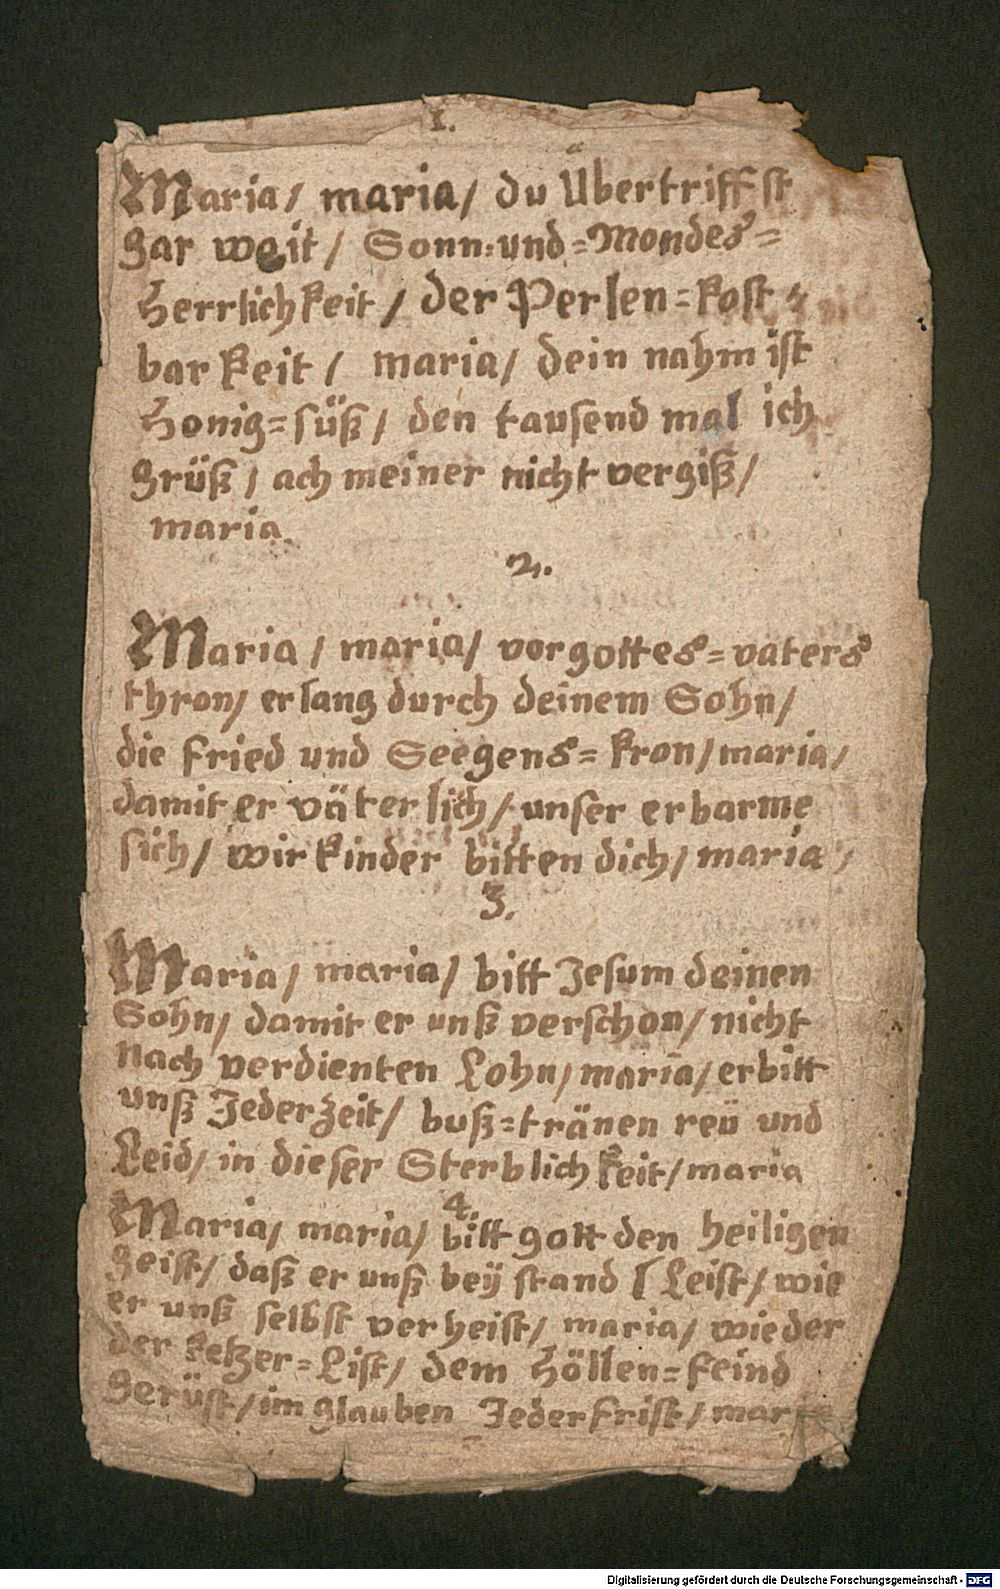 1.
Maria / maria / du Übertriffst
gar weit / Sonn= und = Mondes =
Herrlichkeit / der Perlen = kost =
barkeit / maria / dein nahm ist
Honig = süß / den tausend mal ich
grüß / ach meiner nicht vergiß /
maria.
2.
Maria / maria / vor gottes = vaters
thron / erlang durch deinem Sohn /
die fried und Seegens = kron / maria /
damit er väterlich / unser erbarme
sich / wir kinder bitten dich / maria /
3.
Maria / maria / bitt Jesum deinen
Sohn / damit er unß verschon / nicht
nach verdienten Lohn / maria / erbitt
unß Jederzeit / buß = tränen reü und
Leid / in dieser Sterblichkeit / maria
4.
Maria / maria / bitt gott den heiligen
geist / daß er unß beÿstand Leist / wie
er unß selbst verheist / maria / wieder
der ketzer = List / dem Höllen = feind
gerüst / im glauben Jederfrist / maria
Digitalisierung gefördert durch die Deutsche Forschungsgemeinschaft - DFG